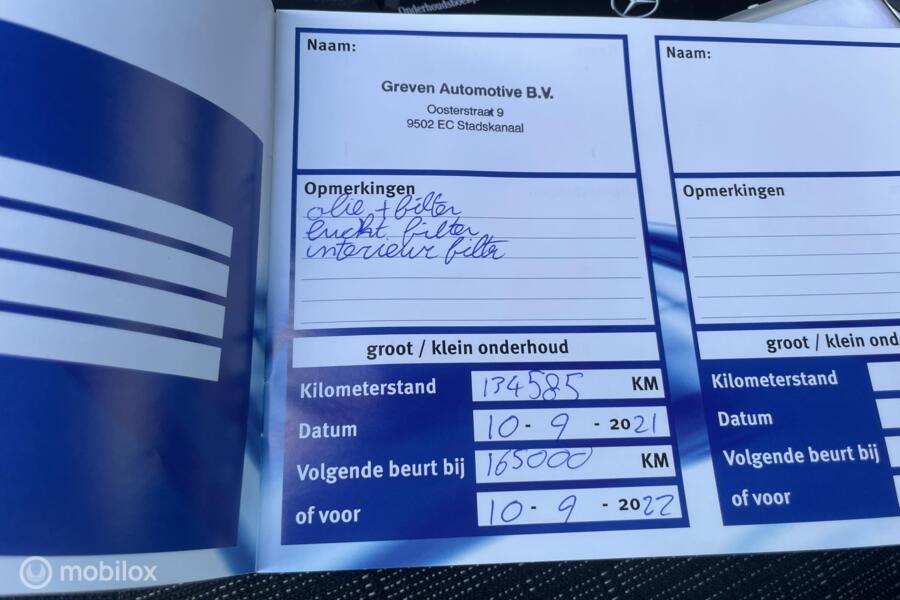 Onderhoudsboekje
Naam:
Greven Automotive B.V.
Oosterstraat 9
9502 EC Stadskanaal
Opmerkingen
olie + filter
lucht filter
interieur filter
groot / klein onderhoud
Kilometerstand 134585 KM
Datum 10 - 9 - 2021
Volgende beurt bij 165000 KM
of voor 10 - 9 - 2022
Naam:
Opmerkingen
groot / klein
Kilometerstand
Datum
Volgende beurt bij
of voor
mobilox